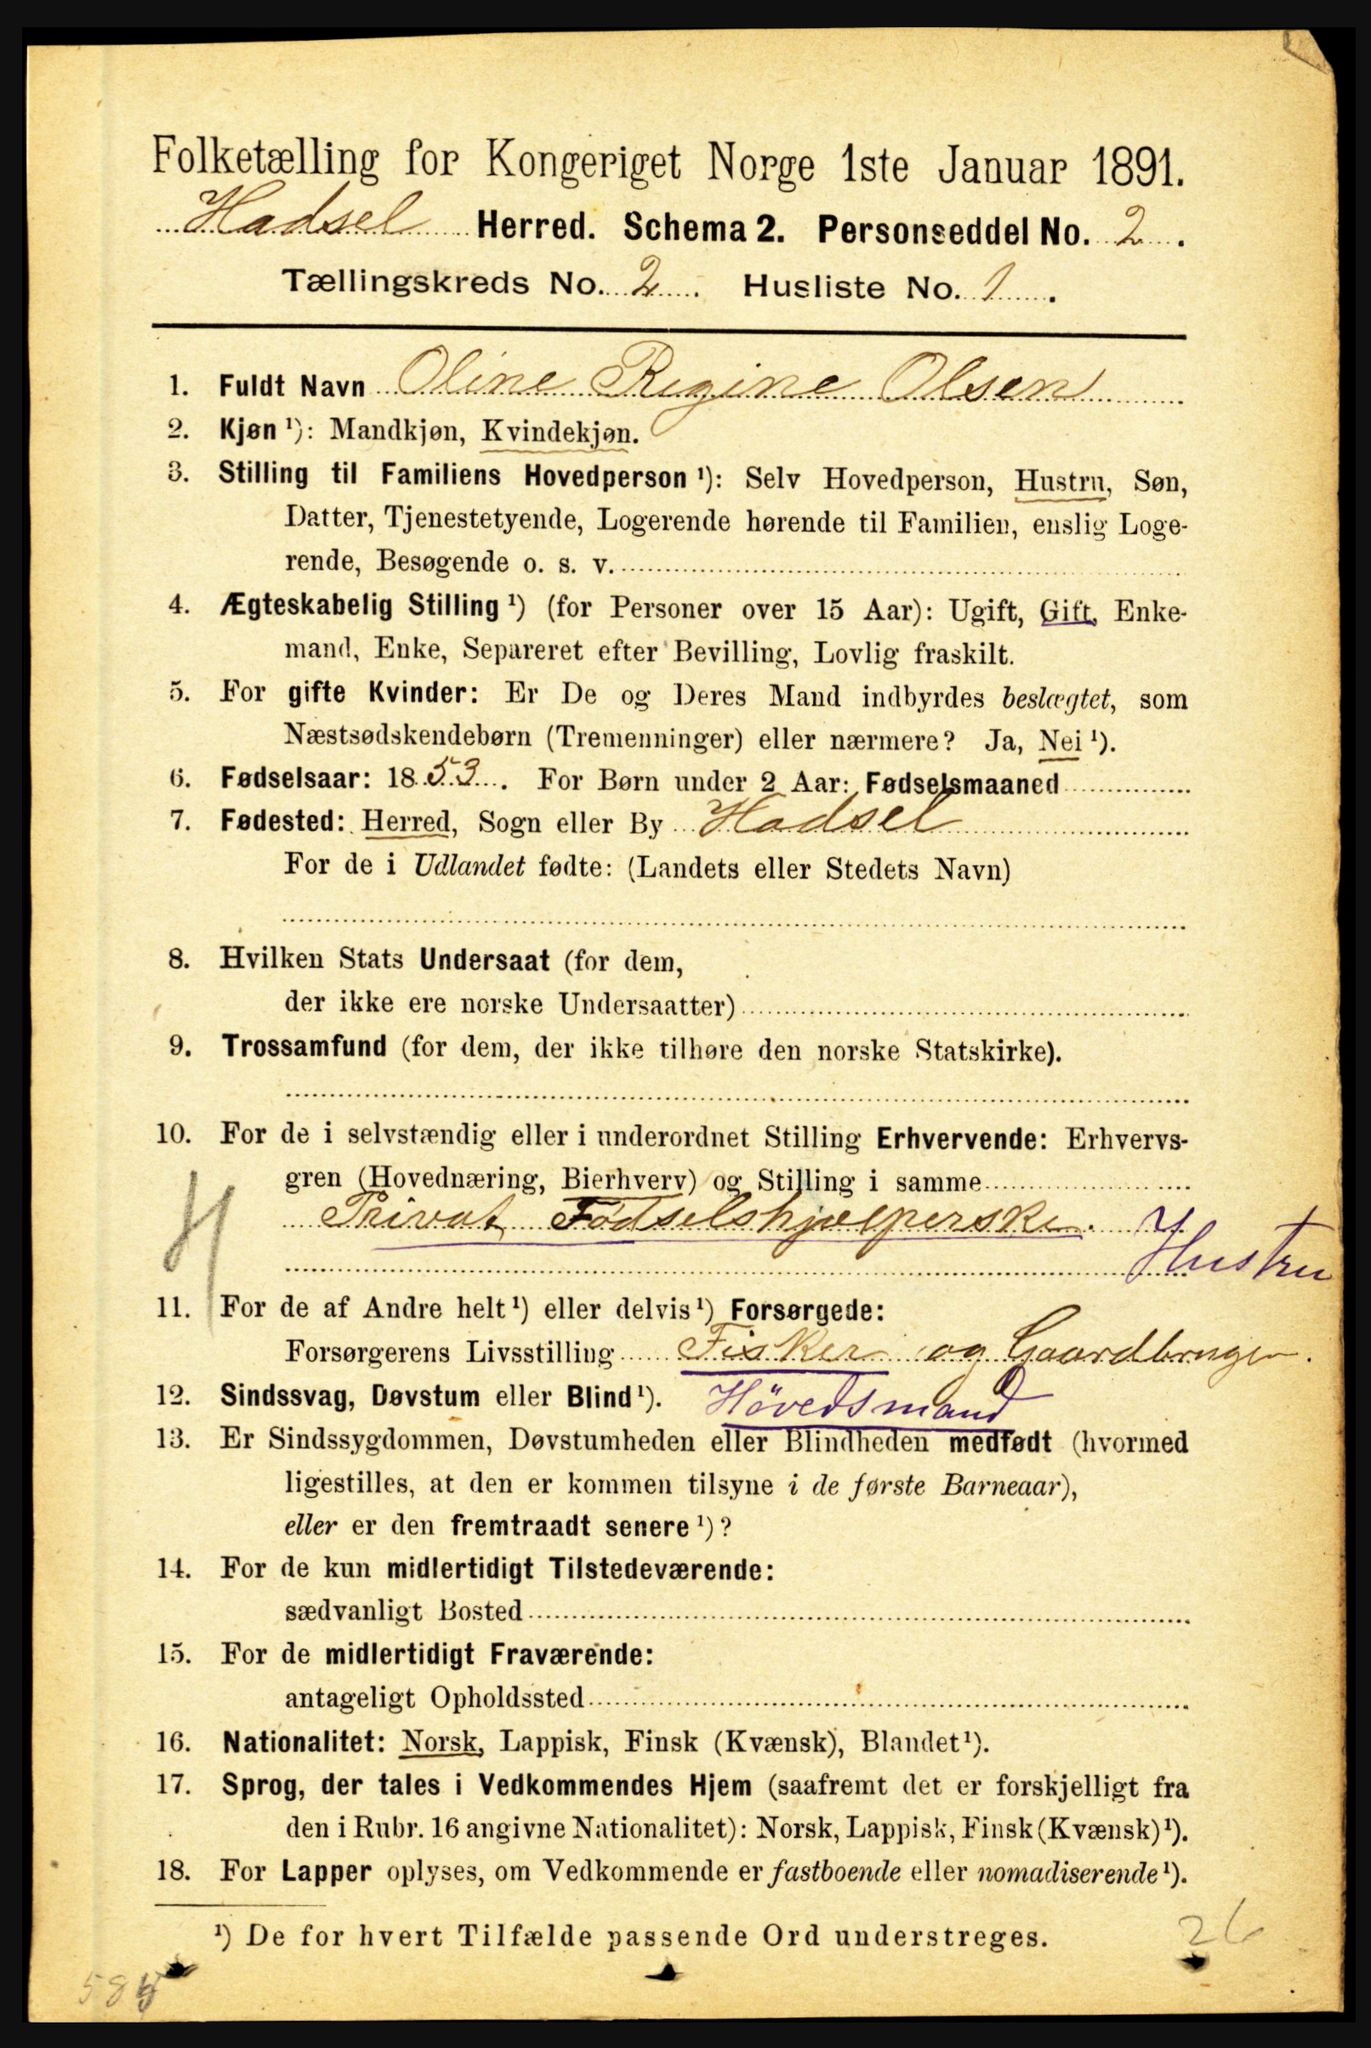 Folketælling for Kongeriget Norge 1ste Januar 1891.
Hadsel Herred. Schema 2. Personseddel No. 2.
Tællingskreds No. 2. Husliste No. 1.
1. Fuldt Navn Oline Regine Olsen
2. Kjøn ¹): Mandkjøn, Kvindekjøn.
3. Stilling til Familiens Hovedperson ¹): Selv Hovedperson, Hustru, Søn,
Datter, Tjenestetyende, Logerende hørende til Familien, enslig Loge-
rende, Besøgende o. s. v.
4. Ægteskabelig Stilling ¹) (for Personer over 15 Aar): Ugift, Gift, Enke-
mand, Enke, Separeret efter Bevilling, Lovlig fraskilt.
5. For gifte Kvinder: Er De og Deres Mand indbyrdes beslægtet, som
Næstsødskendebørn (Tremenninger) eller nærmere? Ja, Nei ¹).
6. Fødselsaar: 1853. For Børn under 2 Aar: Fødselsmaaned
7. Fødested: Herred, Sogn eller By Hadsel
For de i Udlandet fødte: (Landets eller Stedets Navn)
8. Hvilken Stats Undersaat (for dem,
der ikke ere norske Undersaatter)
9. Trossamfund (for dem, der ikke tilhøre den norske Statskirke).
10. For de i selvstændig eller i underordnet Stilling Erhvervende: Erhvervs-
gren (Hovednæring, Bierhverv) og Stilling i samme
H Privat Fødselshjælperske.
Hustru
11. For de af Andre helt ¹) eller delvis ¹) Forsørgede:
Forsørgerens Livsstilling Fisker og Gaardbruger.
12. Sindssvag, Døvstum eller Blind ¹). Hövedsmand
13. Er Sindssygdommen, Døvstumheden eller Blindheden medfødt (hvormed
ligestilles, at den er kommen tilsyne i de første Barneaar),
eller er den fremtraadt senere ¹)?
14. For de kun midlertidigt Tilstedeværende:
sædvanligt Bosted
15. For de midlertidigt Fraværende:
antageligt Opholdssted
16. Nationalitet: Norsk, Lappisk, Finsk (Kvænsk), Blandet ¹).
17. Sprog, der tales i Vedkommendes Hjem (saafremt det er forskjelligt fra
den i Rubr. 16 angivne Nationalitet): Norsk, Lappisk, Finsk (Kvænsk) ¹).
18. For Lapper oplyses, om Vedkommende er fastboende eller nomadiserende ¹).
¹) De for hvert Tilfælde passende Ord understreges.
26